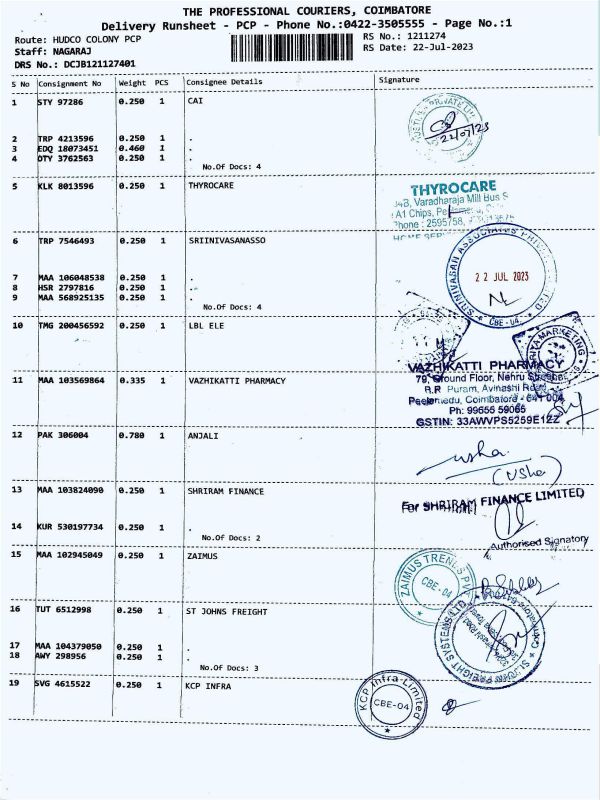 THE PROFESSIONAL COURIERS, COIMBATORE
Delivery Runsheet - PCP - Phone No.:0422-3505555 - Page No.:1
Route: HUDCO COLONY PCP
RS No.: 1211274
Staff: NAGARAJ
RS Date: 22-Jul-2023
DRS No.: DCJB121127401
S No Consignment No Weight PCS Consignee Details Signature
1 STY 97286 0.250 1 CAI
22/07/23
2 TRP 4213596 0.250 1 .
3 EDQ 18073451 0.460 1 .
4 OTY 3762563 0.250 1 .
No.Of Docs: 4
5 KLK 8013596 0.250 1 THYROCARE
THYROCARE
Varadharaja Mill Bus S
A1 Chips,
Phone : 2595758
6 TRP 7546493 0.250 1 SRIINIVASANASSO
SRINIVASAN ASSOCIATES PRIVATE LIMITED
22 JUL 2023
CBE-04
7 MAA 106048538 0.250 1 .
8 HSR 2797816 0.250 1 .
9 MAA 568925135 0.250 1 .
No.Of Docs: 4
10 TMG 200456592 0.250 1 LBL ELE
MARKETING
11 MAA 103569864 0.335 1 VAZHIKATTI PHARMACY
VAZHIKATTI PHARMACY
79, Ground Floor, Nehru
R.R Puram, Avinashi Road
Peelamedu, Coimbatore - 641 004
Ph: 99655 59065
GSTIN: 33AWVPS5259E1ZZ
12 PAK 306004 0.780 1 ANJALI
usha
(Usha)
13 MAA 103824090 0.250 1 SHRIRAM FINANCE
For SHRIRAM FINANCE LIMITED
14 KUR 530197734 0.250 1 .
No.Of Docs: 2
Authorised Signatory
15 MAA 102945049 0.250 1 ZAIMUS
ZAIMUS TRENDS
CBE-04
16 TUT 6512998 0.250 1 ST JOHNS FREIGHT
FREIGHT SYSTEMS LTD
17 MAA 104379050 0.250 1 .
18 AWY 298956 0.250 1 .
No.Of Docs: 3
19 SVG 4615522 0.250 1 KCP INFRA
KCP Infra Limited
CBE-04